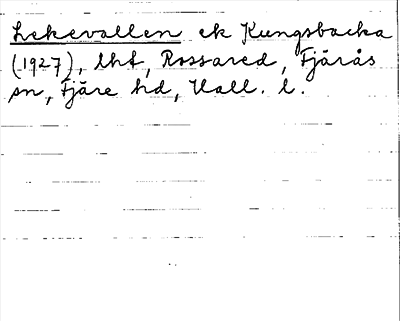 Lekevallen ek Kungsbacka
(1927), lht, Rossared, Fjärås
sn, Fjäre hd, Hall. l.